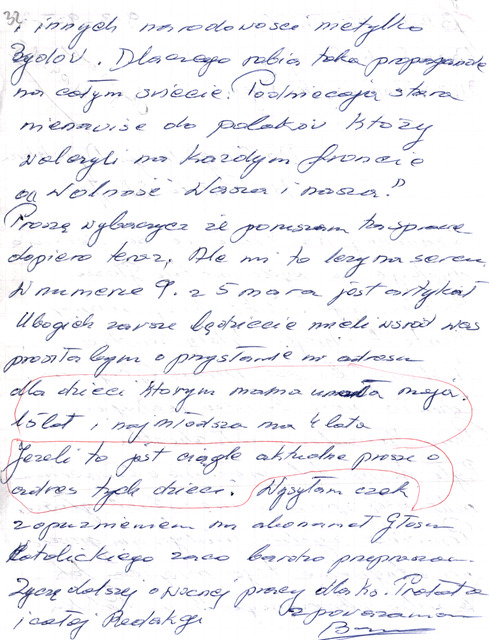 32
i innych narodowości nietylko
Żydów. Dlaczego robią taką propagandę
na całym świecie. Podniecają stara
nienawiść do polaków Ktoży
walczyli na każdym froncie
o Wolność Wasza i nasza?
Proszę wybaczycz że poruszam ta sprawe
dopiero teraz, Ale mi to leży na sercu.
W numerze 9. z 5 marca jest artykół
Ubogich zawsze będziecie mieli wśród was
prosiła bym o przysłanie mi adresu
dla dzieci ktorym mama umarła mają.
15 lat i najmłodsza ma 4 lata
Jeżeli to jest ciągle aktualne prosze o
adres tych dzieci. Wysyłam czek
z opuznieniem na abonamet Głosu
Katolickiego zaco bardzo przepraszam.
Życzę dalszej owocnej pracy dla ks.
i całej Redakcji z powazaniem